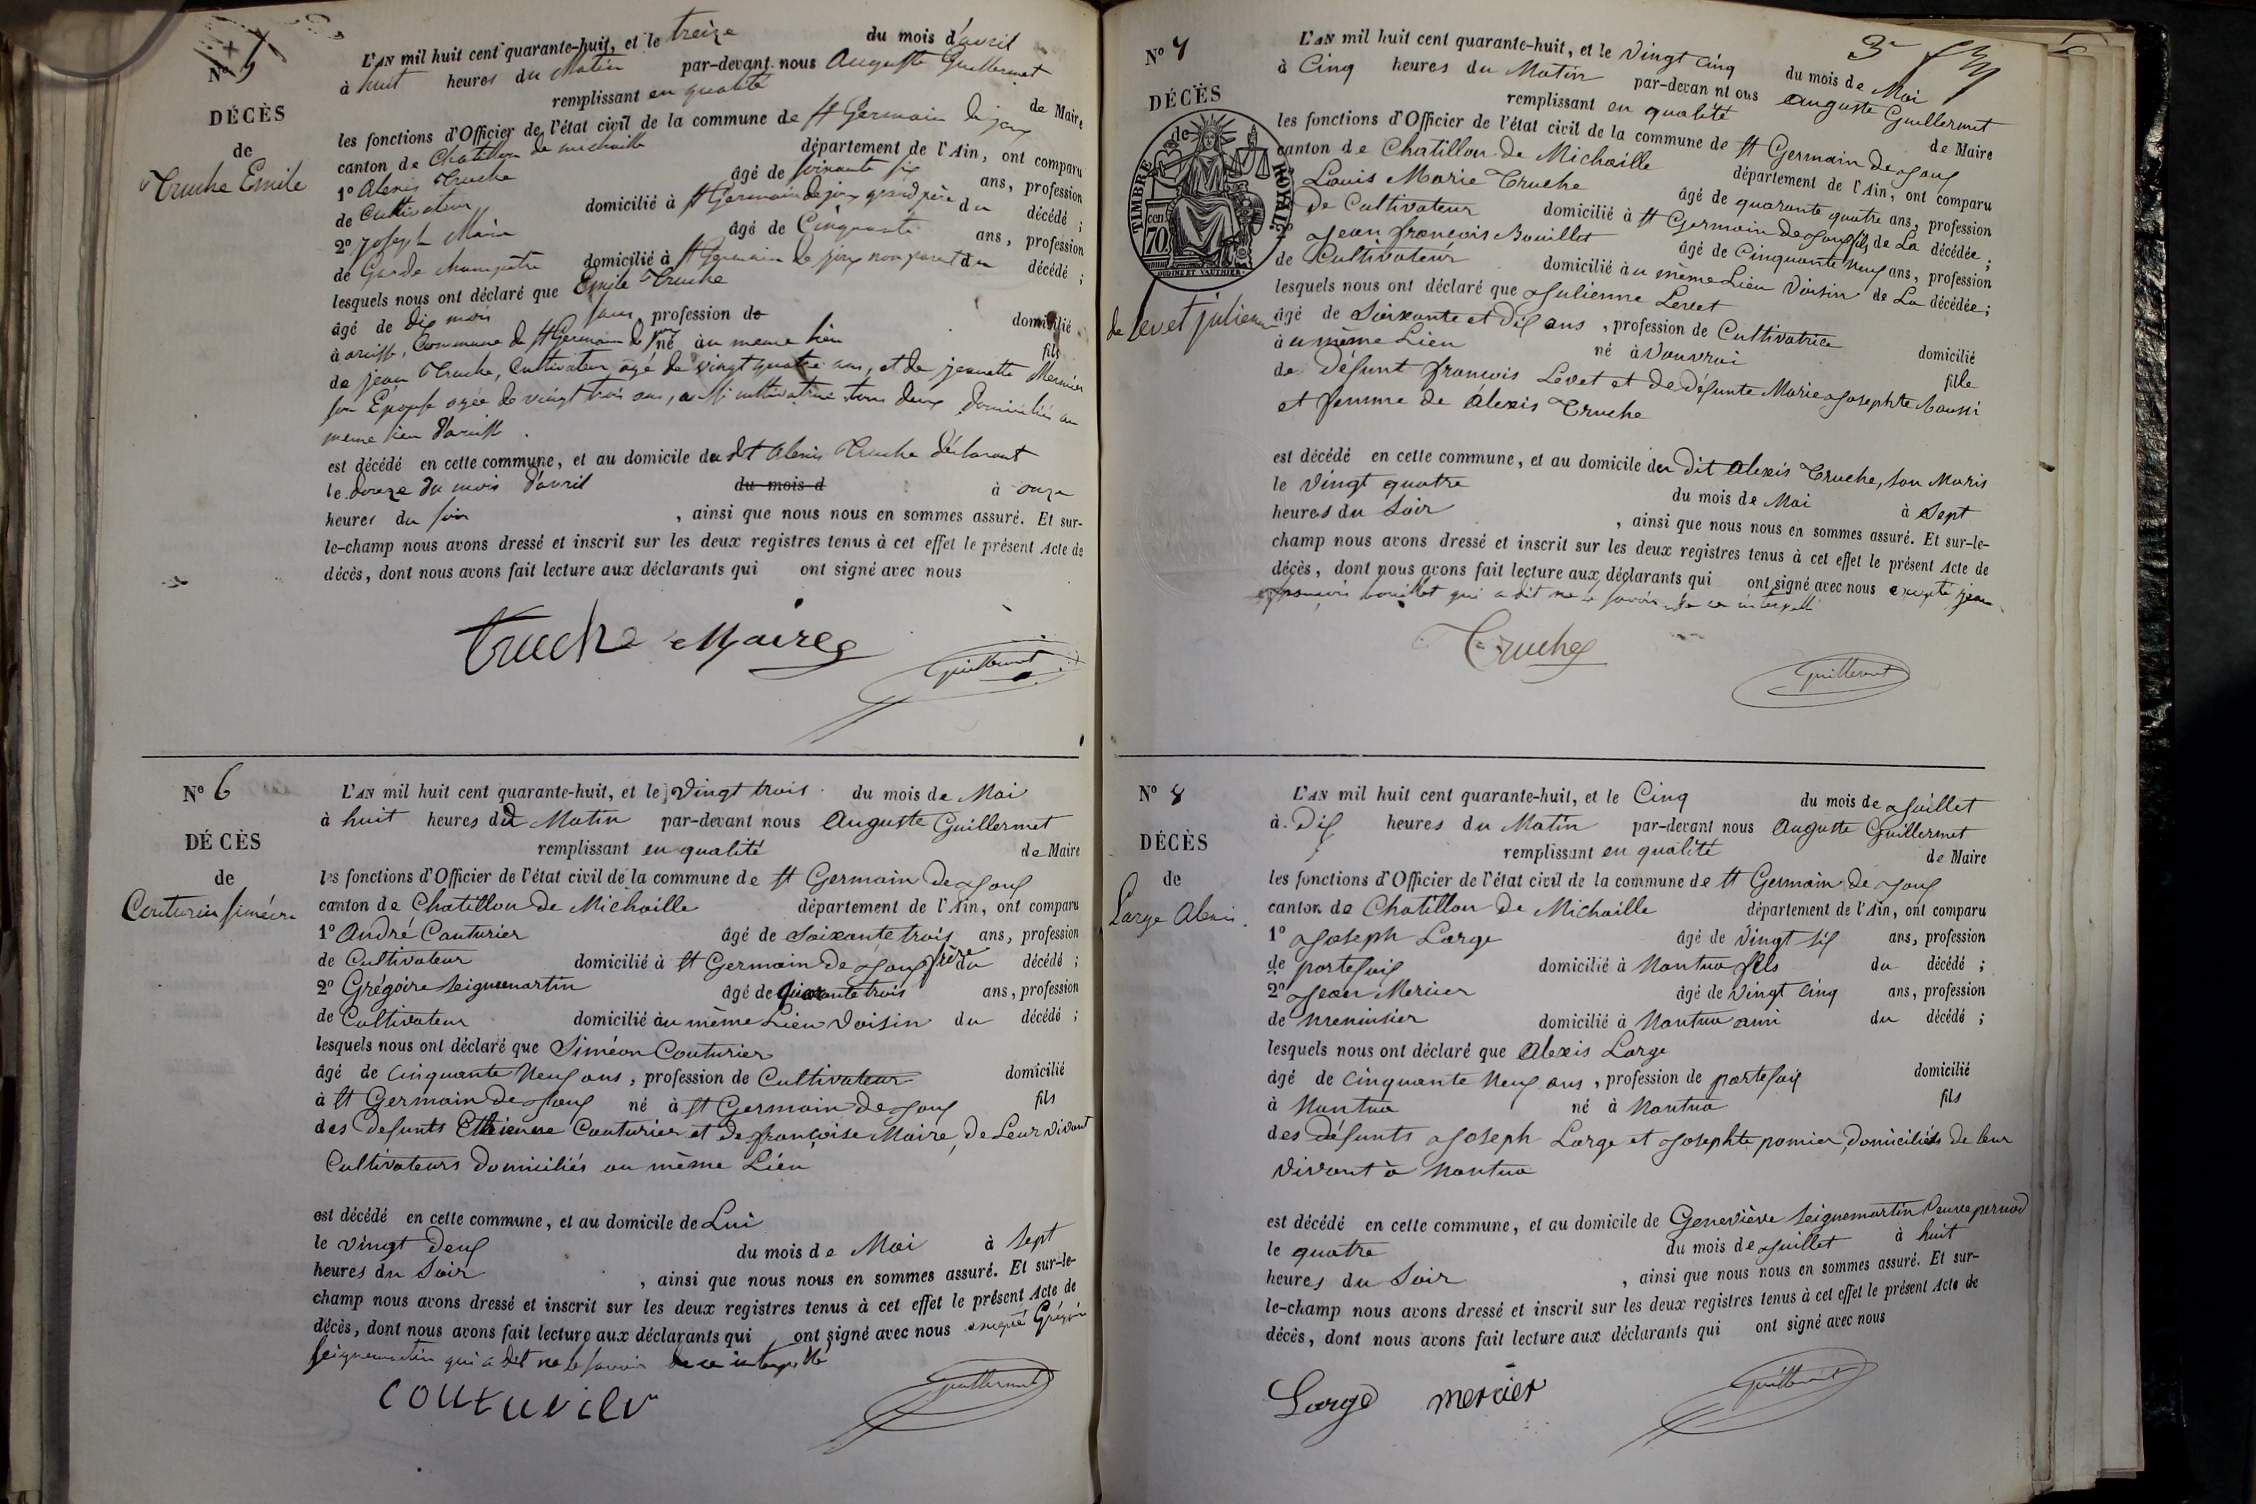 N° 5
DÉCÈS
de
Truche Emile
L'AN mil huit cent quarante-huit, et le treize du mois d'avril
à huit heures du Matin par-devant nous Auguste Guillermet
remplissant en qualité de Maire
les fonctions d'Officier de l'état civil de la commune de St Germain de joux
canton de Chatillon de michaille département de l'Ain, ont comparu
1° Alexis Truche âgé de soixante six ans, profession
de Cultivateur domicilié à St Germain de joux grand père du décédé ;
2° Joseph Maire âgé de Cinquante ans, profession
de Garde champêtre domicilié à St Germain de joux non parent du décédé ;
lesquels nous ont déclaré que Emile Truche
âgé de dix mois sans profession de domicilié
à Commune de St Germain de joux né au meme lieu fils
de jean Truche, Cultivateur âgé de vingt quatre ans, et de jeanette Mermier
son Epouse agée de vingt trois ans, aussi cultivatrice tous deux domiciliés au
meme lieu
est décédé en cette commune, et au domicile du dt Alexis Truche déclarant
le douze du mois d'avril du mois d à onze
heures du soir , ainsi que nous nous en sommes assuré. Et sur-
le-champ nous avons dressé et inscrit sur les deux registres tenus à cet effet le présent Acte de
décès, dont nous avons fait lecture aux déclarants qui ont signé avec nous
Truche Maire
Guillermet
N° 6
DÉCÈS
de
Couturier Siméon
L'AN mil huit cent quarante-huit, et le vingt trois du mois de Mai
à huit heures du Matin par-devant nous Auguste Guillermet
remplissant en qualité de Maire
les fonctions d'Officier de l'état civil de la commune de St Germain de Joux
canton de Chatillon de Michaille département de l'Ain, ont comparu
1° André Couturier âgé de Soixante trois ans, profession
de Cultivateur domicilié à St Germain de Joux frère du décédé ;
2° Grégoire Seignemartin âgé de quarante trois ans, profession
de Cultivateur domicilié au même Lieu Voisin du décédé ;
lesquels nous ont déclaré que Siméon Couturier
âgé de cinquante Neuf ans, profession de Cultivateur domicilié
à St Germain de Joux né à St Germain de Joux fils
des défunts Etienne Couturier et de françoise Maire, de Leur vivant
Cultivateurs domiciliés au même Lieu
est décédé en cette commune, et au domicile de Lui
le vingt deux du mois de Mai à sept
heures du Soir , ainsi que nous nous en sommes assuré. Et sur-le-
champ nous avons dressé et inscrit sur les deux registres tenus à cet effet le présent Acte de
décès, dont nous avons fait lecture aux déclarants qui ont signé avec nous excepté Grégoire
Seignemartin qui a dit ne le savoir de ce interpellé
couturier
Guillermet
3e
N° 7
DÉCÈS
TIMBRE ROYAL
70 cen
de Levet julienne
L'AN mil huit cent quarante-huit, et le Vingt cinq du mois de Mai
à Cinq heures du Matin par-devant nous Auguste Guillermet
remplissant en qualité de Maire
les fonctions d'Officier de l'état civil de la commune de St Germain de Joux
canton de Chatillon de Michaille département de l'Ain, ont comparu
Louis Marie Truche âgé de quarante quatre ans, profession
de Cultivateur domicilié à St Germain de Joux fils de La décédée ;
2° Jean françois Bouillet âgé de Cinquante Neuf ans, profession
de Cultivateur domicilié au même Lieu Voisin de La décédée ;
lesquels nous ont déclaré que Julienne Levet
âgé de Soixante et dix ans, profession de Cultivatrice domicilié
à u même Lieu né à Vouvrai fille
de Défunt françois Levet et de Défunte Marie Josephte
et femme de Alexis Truche
est décédé en cette commune, et au domicile du dit Alexis Truche, son Maris
le Vingt quatre du mois de Mai à Sept
heures du Soir , ainsi que nous nous en sommes assuré. Et sur-le-
champ nous avons dressé et inscrit sur les deux registres tenus à cet effet le présent Acte de
décès, dont nous avons fait lecture aux déclarants qui ont signé avec nous excepté jean
françois bouillet qui a dit ne le savoir de ce interpellé
Truche
Guillermet
N° 8
DÉCÈS
de
Large Alexis
L'AN mil huit cent quarante-huit, et le Cinq du mois de Juillet
à Dix heures du Matin par-devant nous Auguste Guillermet
remplissant en qualité de Maire
les fonctions d'Officier de l'état civil de la commune de St Germain de Joux
canton de Chatillon de Michaille département de l'Ain, ont comparu
1° Joseph Large âgé de Vingt six ans, profession
de portefaix domicilié à Nantua fils du décédé ;
2° Jean Mercier âgé de Vingt Cinq ans, profession
de menuisier domicilié à Nantua ami du décédé ;
lesquels nous ont déclaré que Alexis Large
âgé de cinquante Neuf ans, profession de portefaix domicilié
à Nantua né à Nantua fils
des défunts Joseph Large et Josephte pomier, domiciliés de leur
Vivant à Nantua
est décédé en cette commune, et au domicile de Geneviève Seignemartin Veuve pernod
le quatre du mois de Juillet à huit
heures du Soir , ainsi que nous nous en sommes assuré. Et sur-
le-champ nous avons dressé et inscrit sur les deux registres tenus à cet effet le présent Acte de
décès, dont nous avons fait lecture aux déclarants qui ont signé avec nous
Large mercier
Guillermet